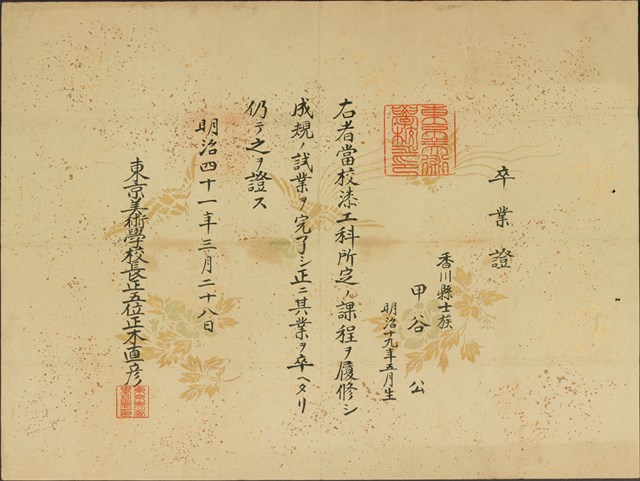 卒業證
香川縣士族
甲谷公
明治十九年五月生
右者當校漆工科所定ノ課程ヲ履修シ
成規ノ試業ヲ完了シ正ニ其業ヲ卒ヘタリ
仍テ之ヲ證ス
明治四十一年三月二十八日
東京美術學校長正五位正木直彦